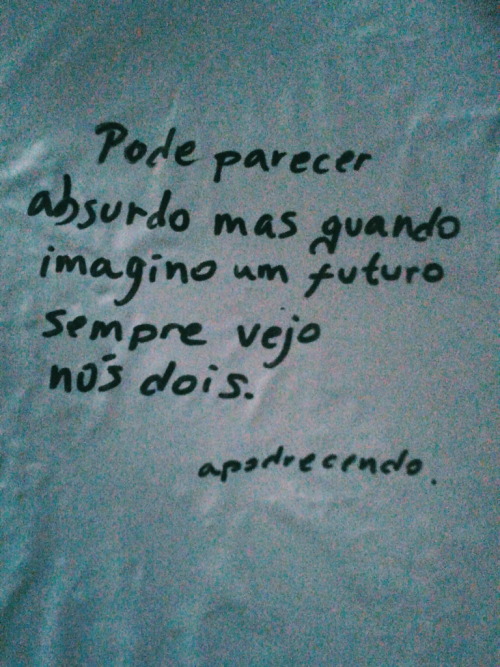 Pode parecer
absurdo mas quando
imagino um futuro
sempre vejo
nós dois.
apodrecendo.